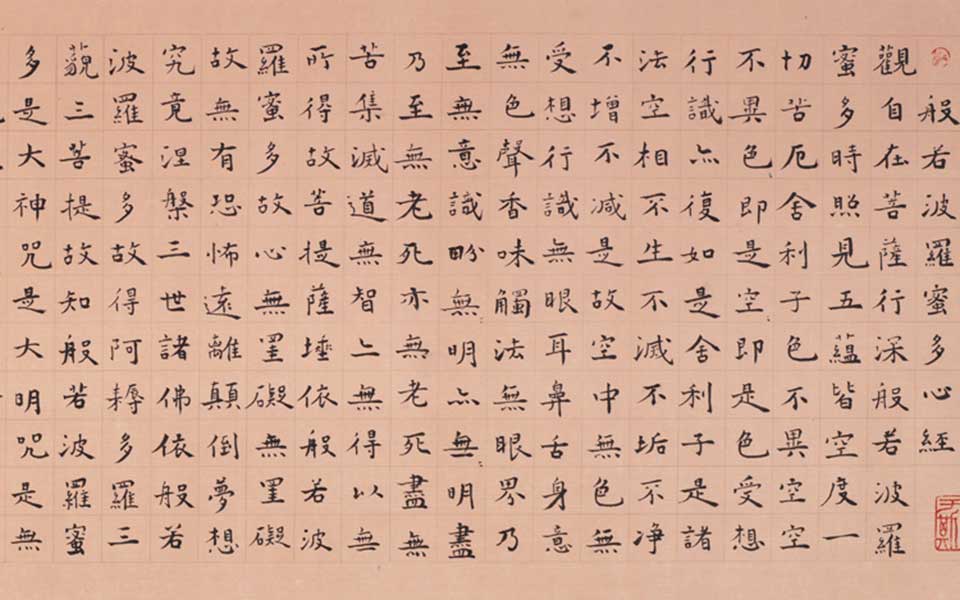 般若波羅蜜多心經
觀自在菩薩行深般若波羅
蜜多時照見五蘊皆空度一
切苦厄舍利子色不異空空
不異色即是空即是色受想
行識亦復如是舍利子是諸
法空相不生不滅不垢不净
不增不減是故空中無色無
受想行識無眼耳鼻舌身意
無色聲香味觸法無眼界乃
至無意識畍無明亦無明盡
乃至無老死亦無老死盡無
苦集滅道無智亦無得以無
所得故菩提薩埵依般若波
羅蜜多故心無罣礙無罣礙
故無有恐怖遠離顛倒夢想
究竟涅槃三世諸佛依般若
波羅蜜多故得阿耨多羅三
藐三菩提故知般若波羅蜜
多是大神咒是大明咒是無